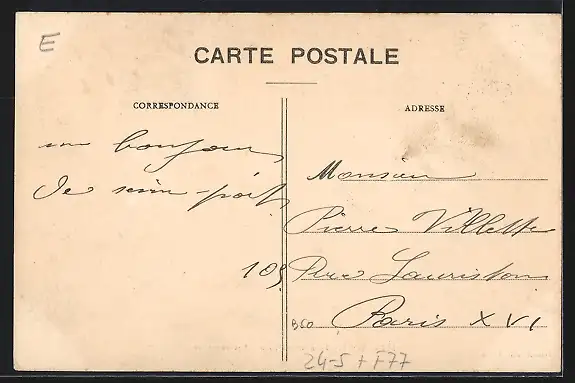 E
CARTE POSTALE
CORRESPONDANCE
un bonjour
De
ADRESSE
Monsieur
Pierre Villette
109 Rue Lauriston
Paris XVI
950
24-5 + F77